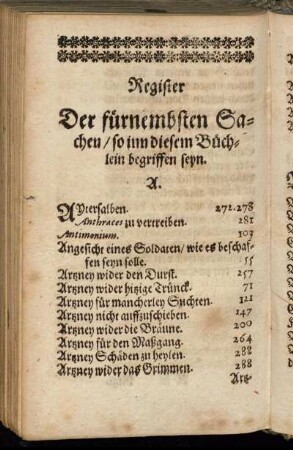 Register
Der fürnembsten Sa-
chen / so inn diesem Büch-
lein begriffen seyn.
A.
Aytersalben. 271.278
Anthraces zu vertreiben. 281
Antimonium. 103
Angesicht eines Soldaten / wie es beschaf-
fen seyn solle. 55
Artzney wider den Durst. 257
Artzney wider hitzige Trünck. 71
Artzney für mancherley Suchten. 121
Artzney nicht auffzuschieben. 147
Artzney wider die Bräune. 200
Artzney für den Maßgang. 264
Artzney Schäden zu heylen. 282
Artzney wider das Grimmen. 288
Artz-